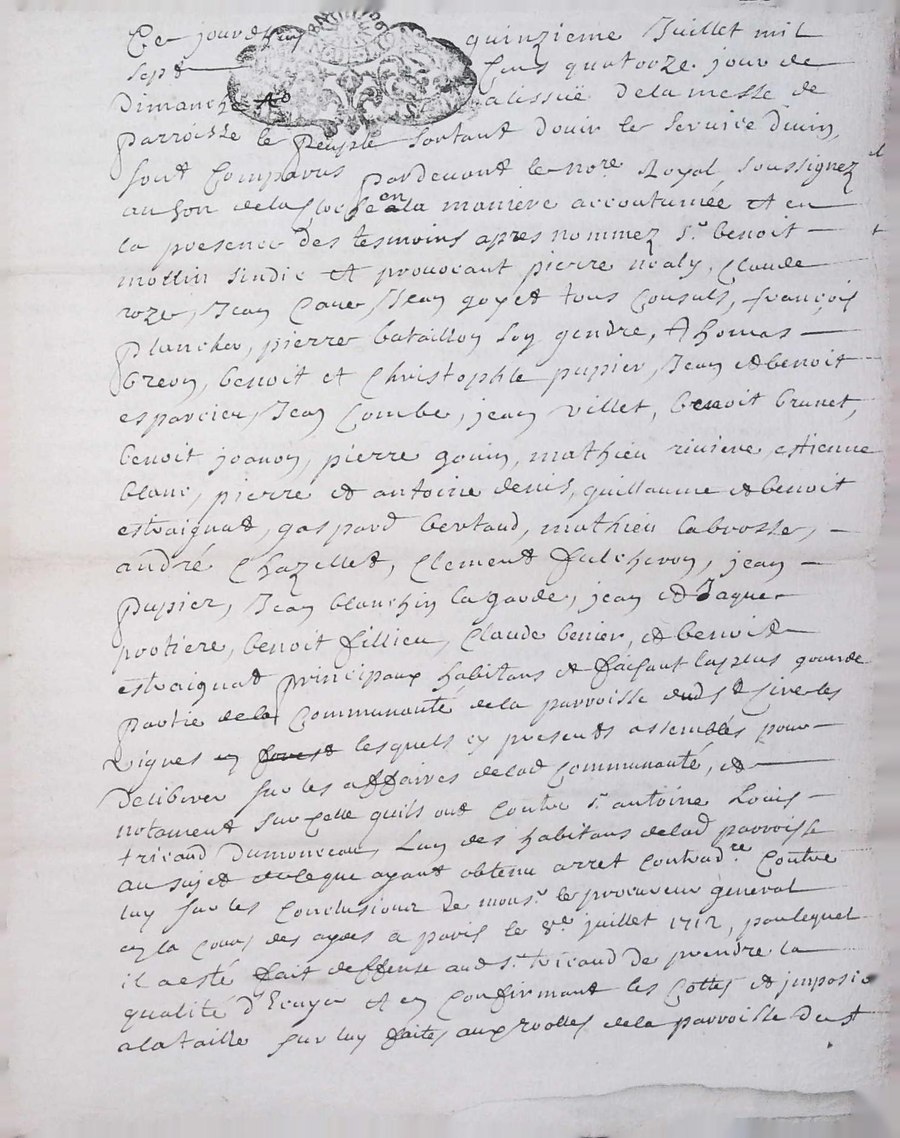 Ce jourdhuy quinzieme Juillet mil
sept cens quatorze jour de
Dimanche alissuë dela messe de
parroisse le peuple sortant douir le service divin,
sont Comparus pardevant le nore Royal soussignez
au son dela Cloche en la maniere accoutumée et en
la presence des tesmoins apres nommez sr. benoit
mollin sindic et provocant pierre nealy, Claude
roze, Jean Cave, Jean goyet tous Consuls, françois
plancher, pierre bataillon son gendre, thomas
Breon, benoit et Christophle pupier, Jean et benoit
esparcieu, Jean Combe, jean villet, benoit brunet,
benoit joanon, pierre gouin, mathieu riviere, estienne
blanc, pierre et antoine denis, guillaume et benoit
estraignat, gaspard bertaud, mathieu labrosse,
andré Chazellet, Clement fulcheron, jean
pupier, Jean blanchin lagarde, jean et Jaque
protiere, benoit fillieu, Claude benier, et benoit
estraignat principaux habitans et faisant la plus grande
partie dela Communauté dela parroisse dud st Cire les
vignes en forest lesquels en presents assemblés pour
deliberer sur les affaires delad Communauté, et
notament sur Celle quils ont Contre sr. antoine Louis
tricaud Dumonceau, Lun des habitans delad parroisse
au sujet de ce que ayant obtenu arret Contradre. Contre
luy sur les Conclusions de monsr. le procureur general
en la Cour des aydes a paris le 8me juillet 1712, par lequel
il a esté fait deffense aud sr. tricaud de prendre la
qualité d'Ecuyer et en Confirmant les Cottes et imposi
a la taille sur luy faites aux rolles dela parroisse de st